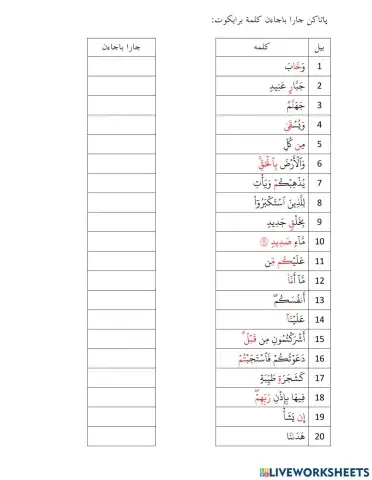 ڽاتاکن جارا باچاءن کلمة برايکوت:
بيل کلمه جارا باچاءن
1 وَخَابَ
2 جَبَّارٍ عَنِيدٍ
3 جَهَنَّمُ
4 وَيُسْقَىٰ
5 مِن كُلِّ
6 وَٱلْأَرْضَ بِٱلْحَقِّۚ
7 يُذْهِبْكُمْ وَيَأْتِ
8 لِلَّذِينَ ٱسْتَكْبَرُوٓا۟
9 بِخَلْقٍ جَدِيدٍ
10 مَّآءٍ صَدِيدٍ
11 عَلَيْكُم مِّن
12 مَّآ أَنَا۠
13 أَنفُسَكُم ۖ
14 عَلَيْنَآ
15 أَشْرَكْتُمُونِ مِن قَبْلُ ۗ
16 دَعَوْتُكُمْ فَٱسْتَجَبْتُمْ
17 كَشَجَرَةٍ طَيِّبَةٍ
18 فِيهَا بِإِذْنِ رَبِّهِمْ ۖ
19 إِن يَشَأْ
20 هَدَىٰنَا
LIVEWORKSHEETS